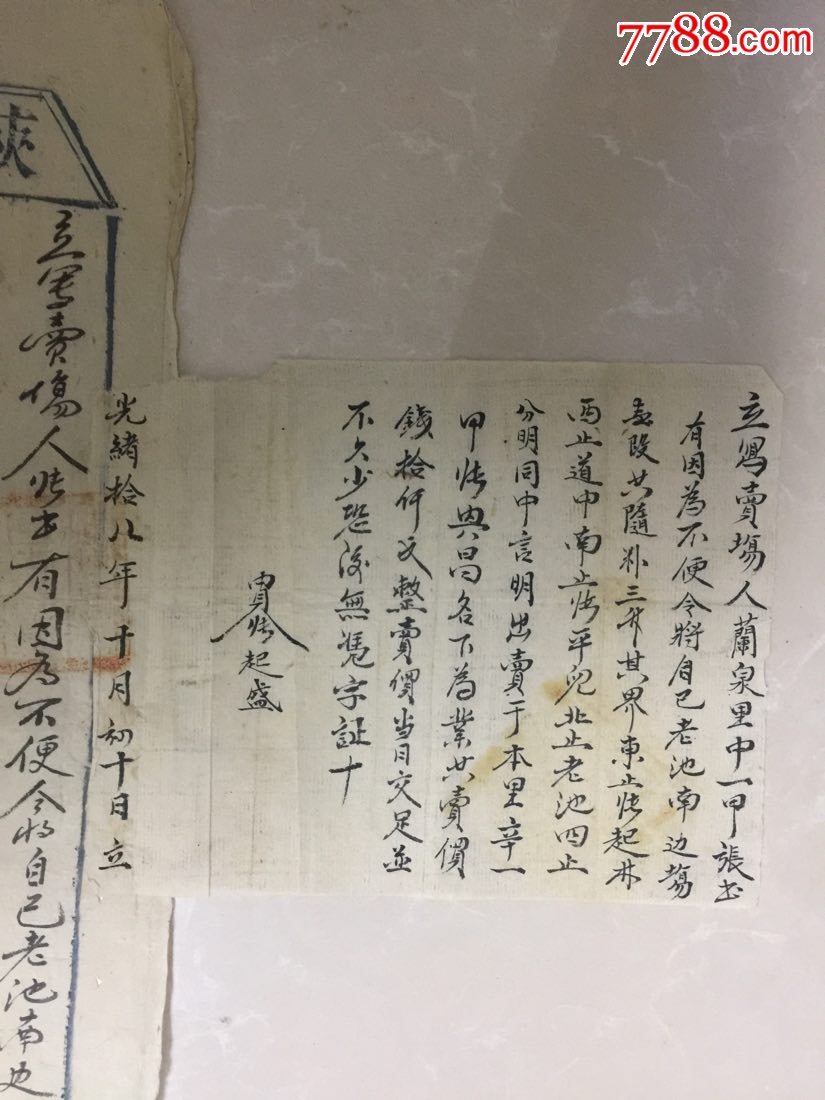 7788.com
立寫賣塲人蘭泉里中一甲張書
有因為不便令將自己老池南边塲
壹段共隨粮三升其界東止張起林
西止道中南止張平兒北止老池四止
分明同中言明出賣于本里辛一
甲張興昌名下為業共賣價
錢拾仟文整賣價當日交足並
不欠少恐後無凴字証十
張起盛
光緒拾八年十月初十日立
立寫賣塲人張書有因為不便令將自己老池南边